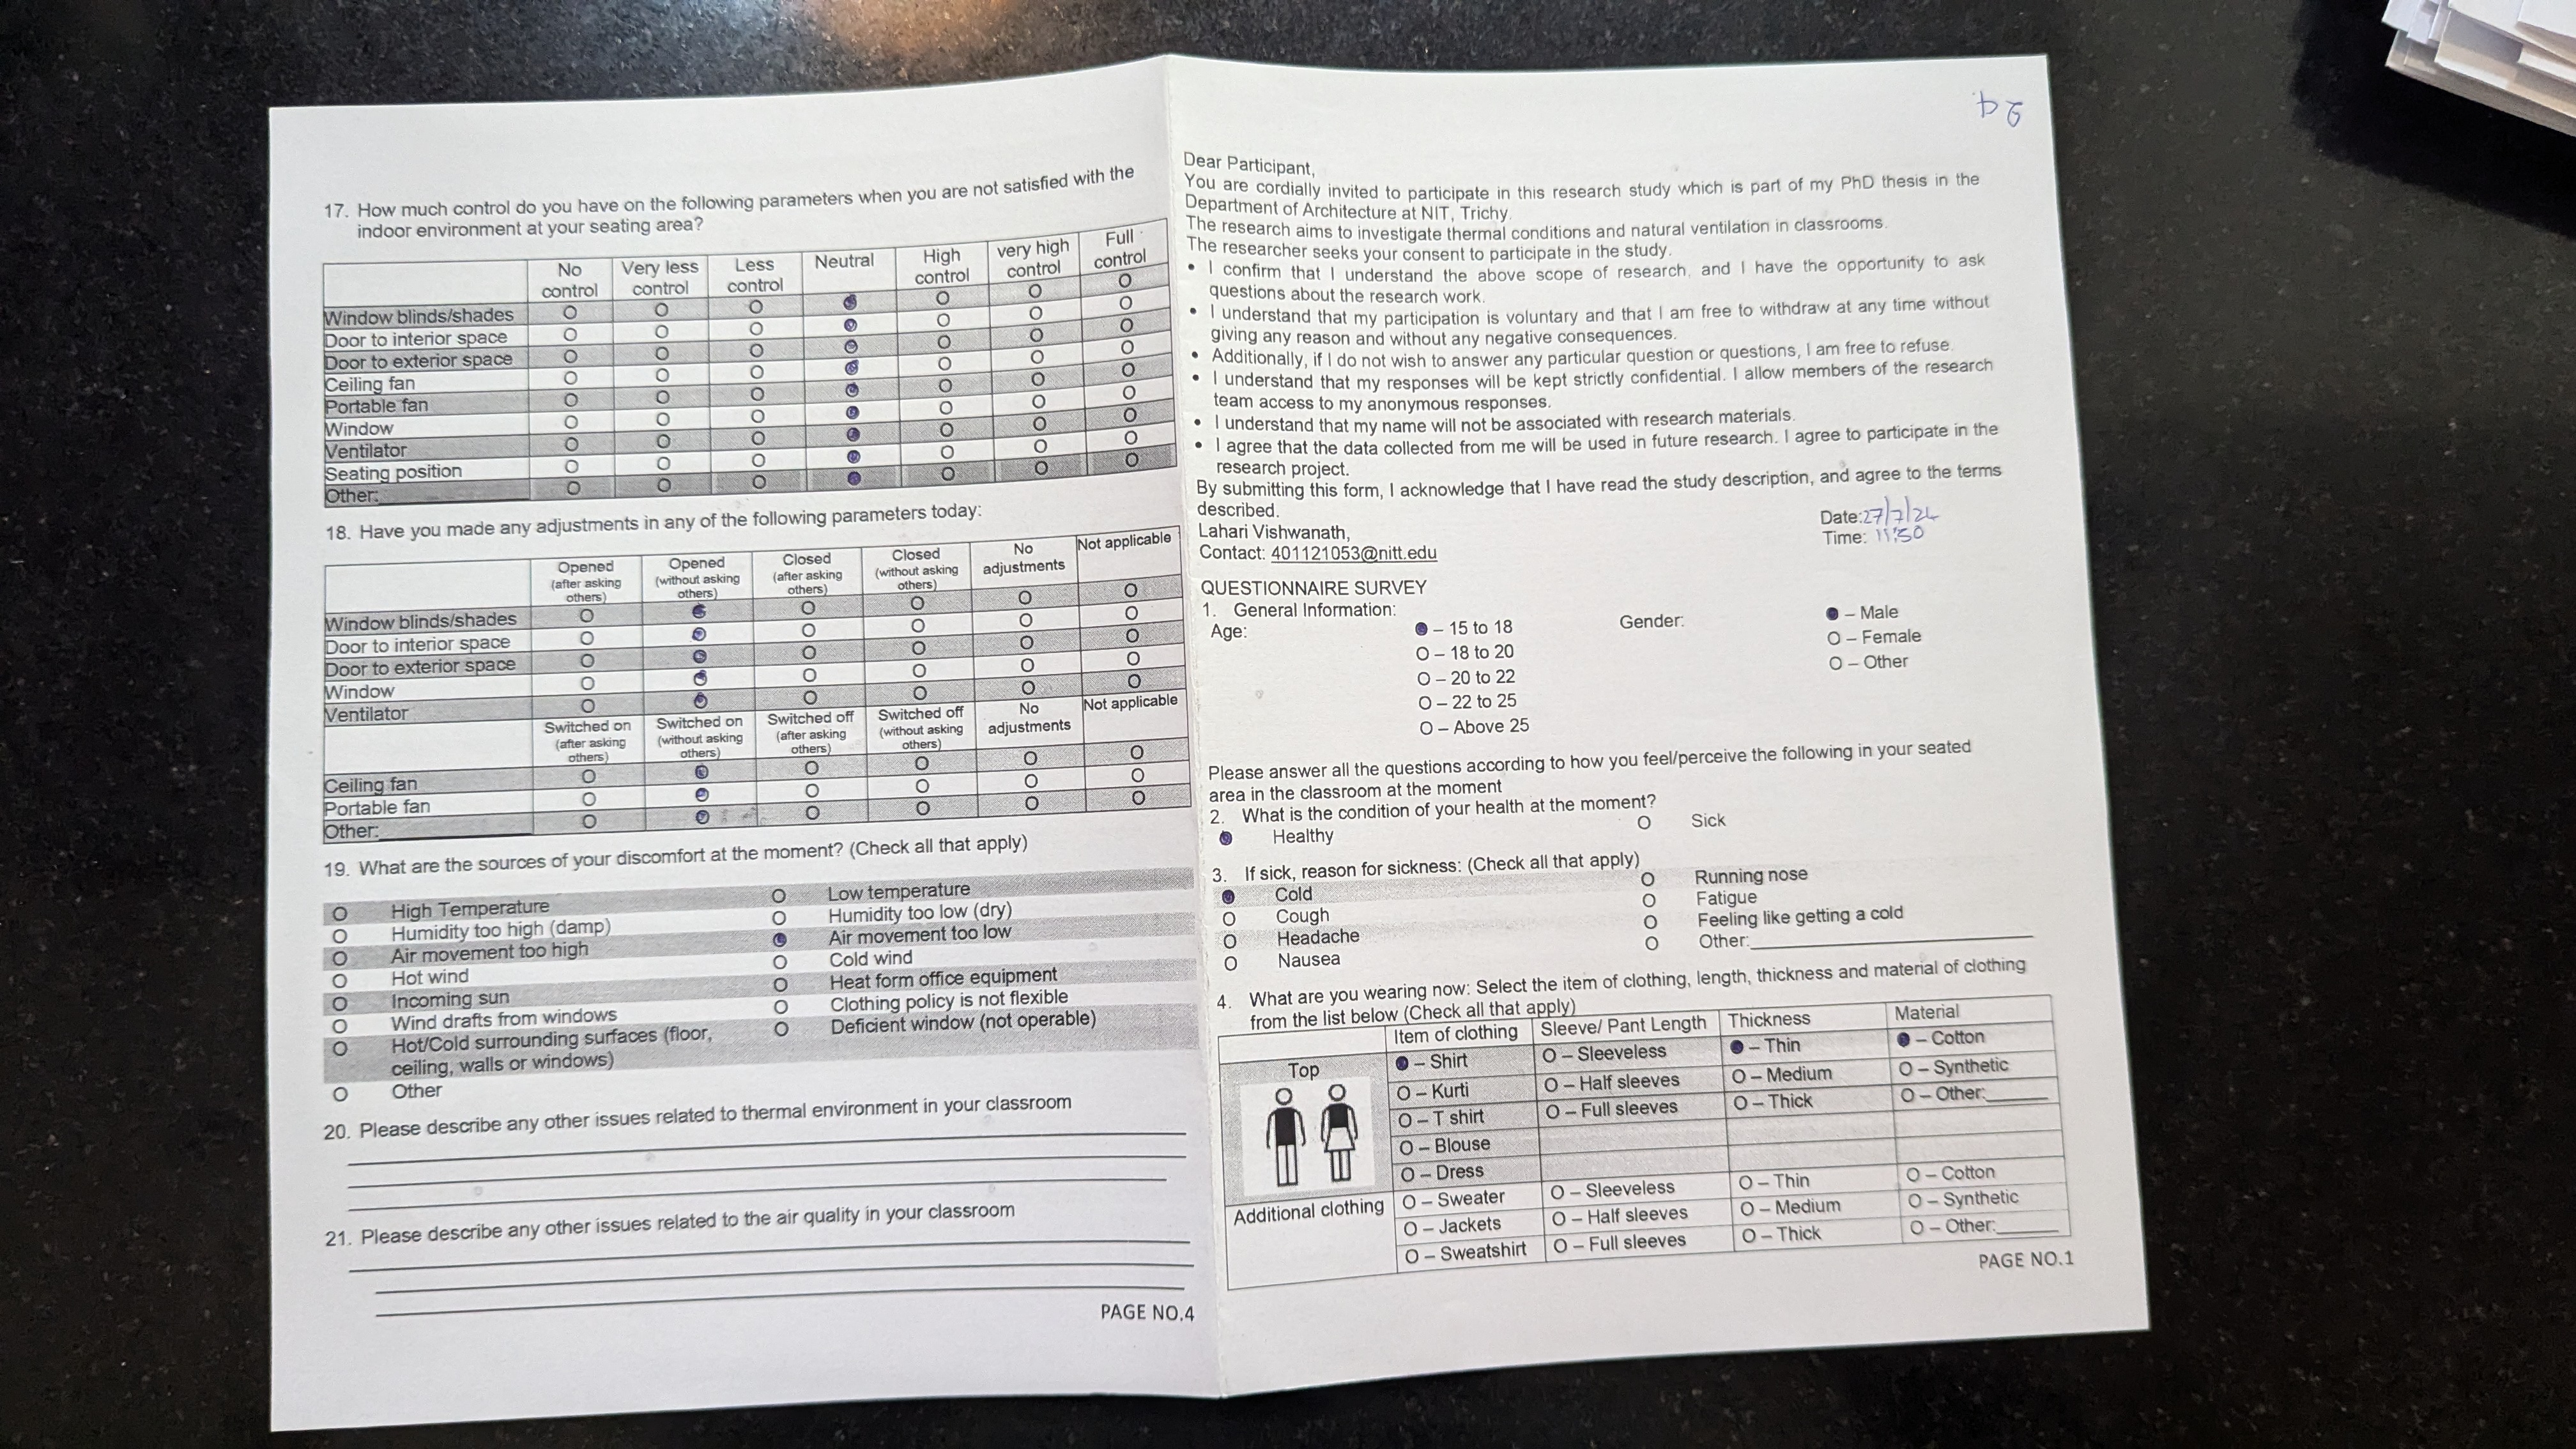 17. How much control do you have on the following parameters when you are not satisfied with the
indoor environment at your seating area?
No control Very less control Less control Neutral High control very high control Full control
Window blinds/shades O O O ● O O O
Door to interior space O O O ● O O O
Door to exterior space O O O ● O O O
Ceiling fan O O O ● O O O
Portable fan O O O ● O O O
Window O O O ● O O O
Ventilator O O O ● O O O
Seating position O O O ● O O O
Other: O O O ● O O O
18. Have you made any adjustments in any of the following parameters today:
Opened (after asking others) Opened (without asking others) Closed (after asking others) Closed (without asking others) No adjustments Not applicable
Window blinds/shades O ● O O O O
Door to interior space O ● O O O O
Door to exterior space O ● O O O O
Window O ● O O O O
Ventilator O ● O O O O
Switched on (after asking others) Switched on (without asking others) Switched off (after asking others) Switched off (without asking others) No adjustments Not applicable
Ceiling fan O ● O O O O
Portable fan O ● O O O O
Other: O ● O O O O
19. What are the sources of your discomfort at the moment? (Check all that apply)
O High Temperature O Low temperature
O Humidity too high (damp) O Humidity too low (dry)
O Air movement too high ● Air movement too low
O Hot wind O Cold wind
O Incoming sun O Heat form office equipment
O Wind drafts from windows O Clothing policy is not flexible
O Hot/Cold surrounding surfaces (floor, O Deficient window (not operable)
ceiling, walls or windows)
O Other
20. Please describe any other issues related to thermal environment in your classroom
21. Please describe any other issues related to the air quality in your classroom
PAGE NO.4
Dear Participant,
You are cordially invited to participate in this research study which is part of my PhD thesis in the
Department of Architecture at NIT, Trichy.
The research aims to investigate thermal conditions and natural ventilation in classrooms.
The researcher seeks your consent to participate in the study.
• I confirm that I understand the above scope of research, and I have the opportunity to ask
questions about the research work.
• I understand that my participation is voluntary and that I am free to withdraw at any time without
giving any reason and without any negative consequences.
• Additionally, if I do not wish to answer any particular question or questions, I am free to refuse.
• I understand that my responses will be kept strictly confidential. I allow members of the research
team access to my anonymous responses.
• I understand that my name will not be associated with research materials.
• I agree that the data collected from me will be used in future research. I agree to participate in the
research project.
By submitting this form, I acknowledge that I have read the study description, and agree to the terms
described.
Lahari Vishwanath,
Contact: 401121053@nitt.edu
Date:27/7/24
Time: 11:50
QUESTIONNAIRE SURVEY
1. General Information:
Age: ● – 15 to 18 Gender: ● – Male
O – 18 to 20 O – Female
O – 20 to 22 O – Other
O – 22 to 25
O – Above 25
Please answer all the questions according to how you feel/perceive the following in your seated
area in the classroom at the moment
2. What is the condition of your health at the moment?
● Healthy O Sick
3. If sick, reason for sickness: (Check all that apply)
● Cold O Running nose
O Cough O Fatigue
O Headache O Feeling like getting a cold
O Nausea O Other:
4. What are you wearing now: Select the item of clothing, length, thickness and material of clothing
from the list below (Check all that apply)
Item of clothing Sleeve/ Pant Length Thickness Material
Top ● – Shirt O – Sleeveless ● – Thin ● – Cotton
O – Kurti O – Half sleeves O – Medium O – Synthetic
O – T shirt O – Full sleeves O – Thick O – Other:
O – Blouse
O – Dress
Additional clothing O – Sweater O – Sleeveless O – Thin O – Cotton
O – Jackets O – Half sleeves O – Medium O – Synthetic
O – Sweatshirt O – Full sleeves O – Thick O – Other:
PAGE NO.1